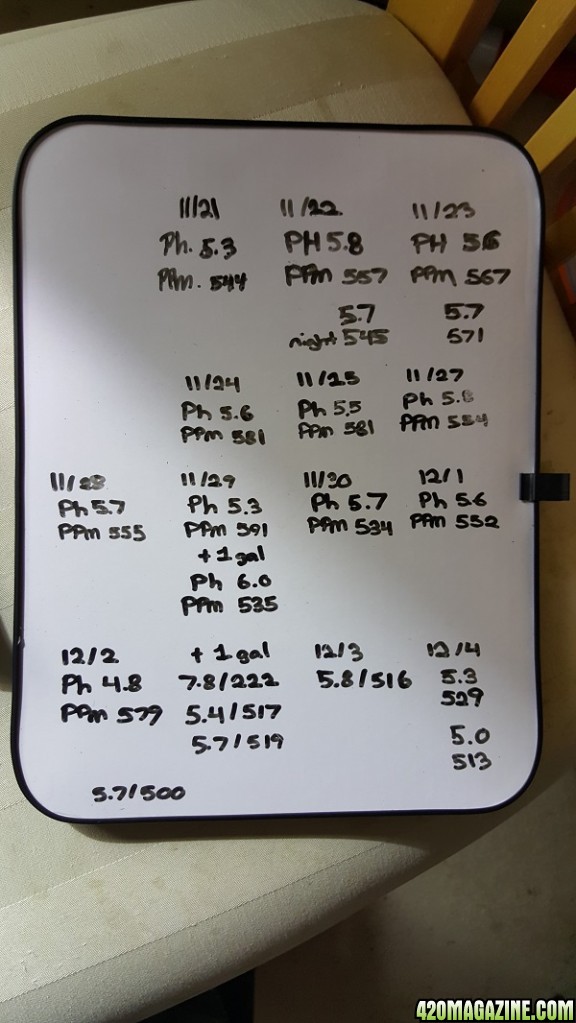 11/21
Ph. 5.3
PPm. 544
11/22
PH 5.8
PPm 557
5.7
night 545
11/23
PH 5.6
PPm 567
5.7
571
11/24
Ph 5.6
PPm 581
11/25
Ph 5.5
PPm 581
11/27
Ph 5.8
PPm 554
11/28
Ph 5.7
PPm 555
11/29
Ph 5.3
PPm 591
+ 1 gal
Ph 6.0
PPm 535
11/30
Ph 5.7
PPm 534
12/1
Ph 5.6
PPm 552
12/2
Ph 4.8
PPm 579
+ 1 gal
7.8/222
5.4/517
5.7/519
12/3
5.8/516
12/4
5.3
529
5.0
513
5.7/500
420MAGAZINE.COM